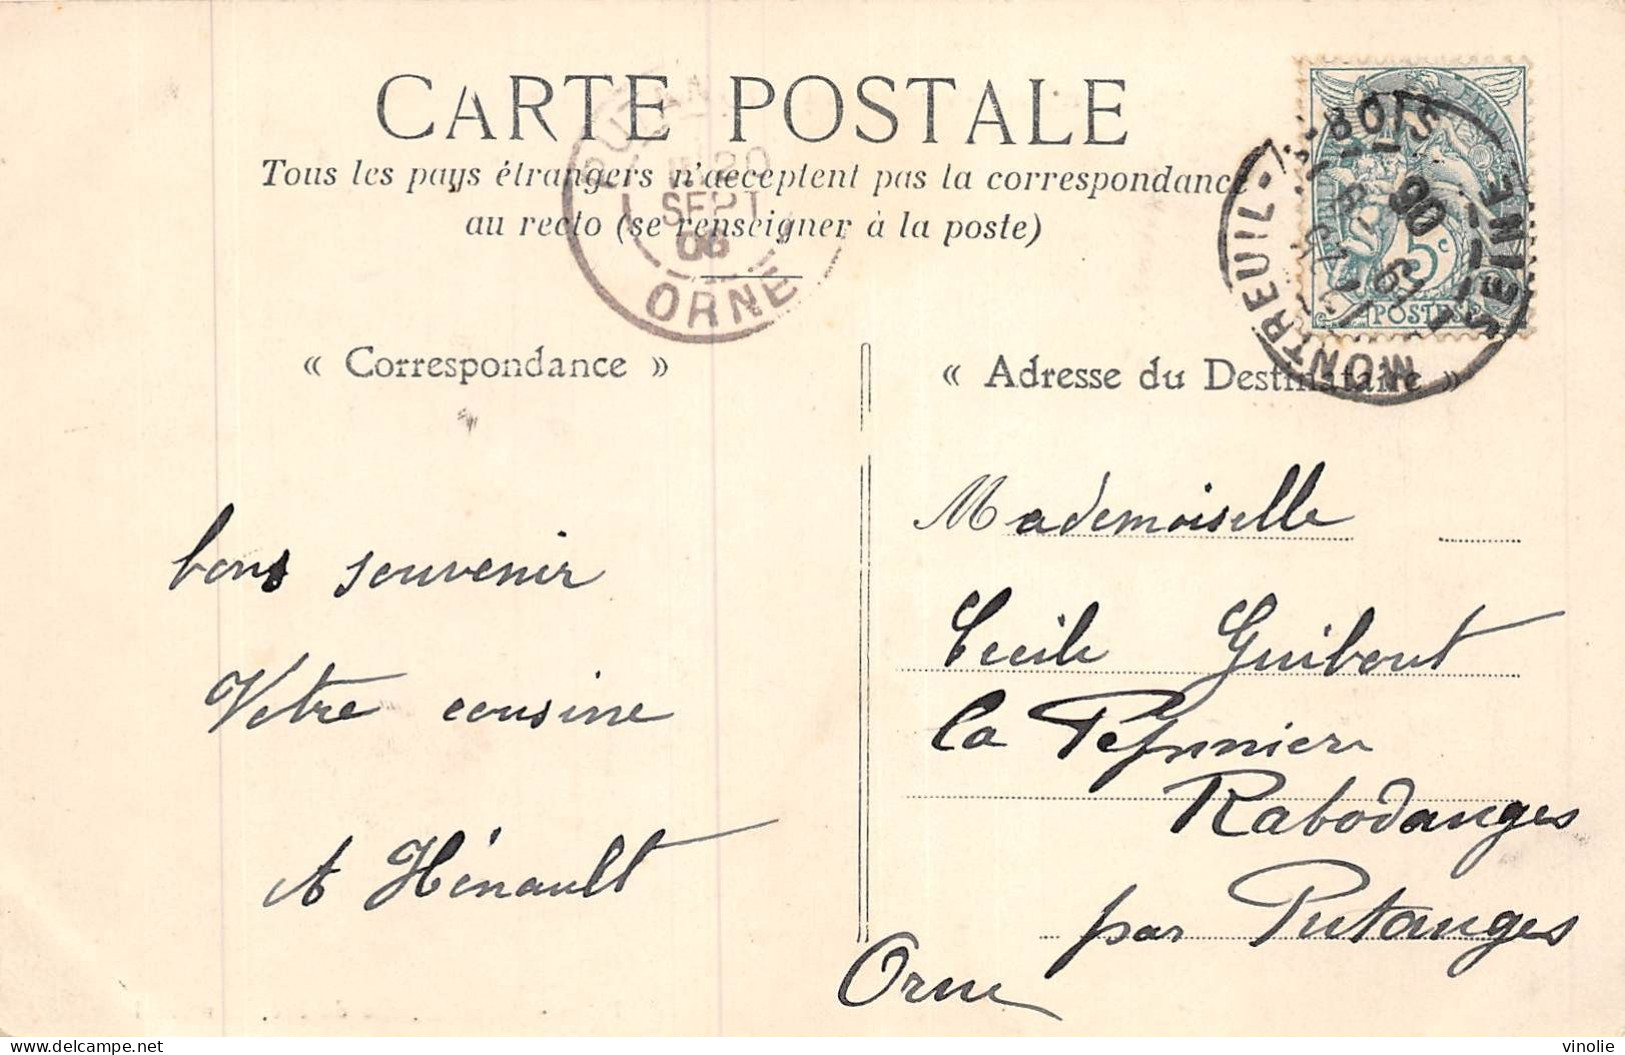 CARTE POSTALE
Tous les pays étrangers n'acceptent pas la correspondance
au recto (se renseigner à la poste)
SEPT
06
ORNE
MONTREUIL-S-BOIS
SEINE
5c
POSTES
« Correspondance »
« Adresse du Destinataire »
bons souvenir
Votre cousine
A Hénault
Mademoiselle
Cecile Guibout
la
Rabodanges
par Putanges
Orne
vinolie